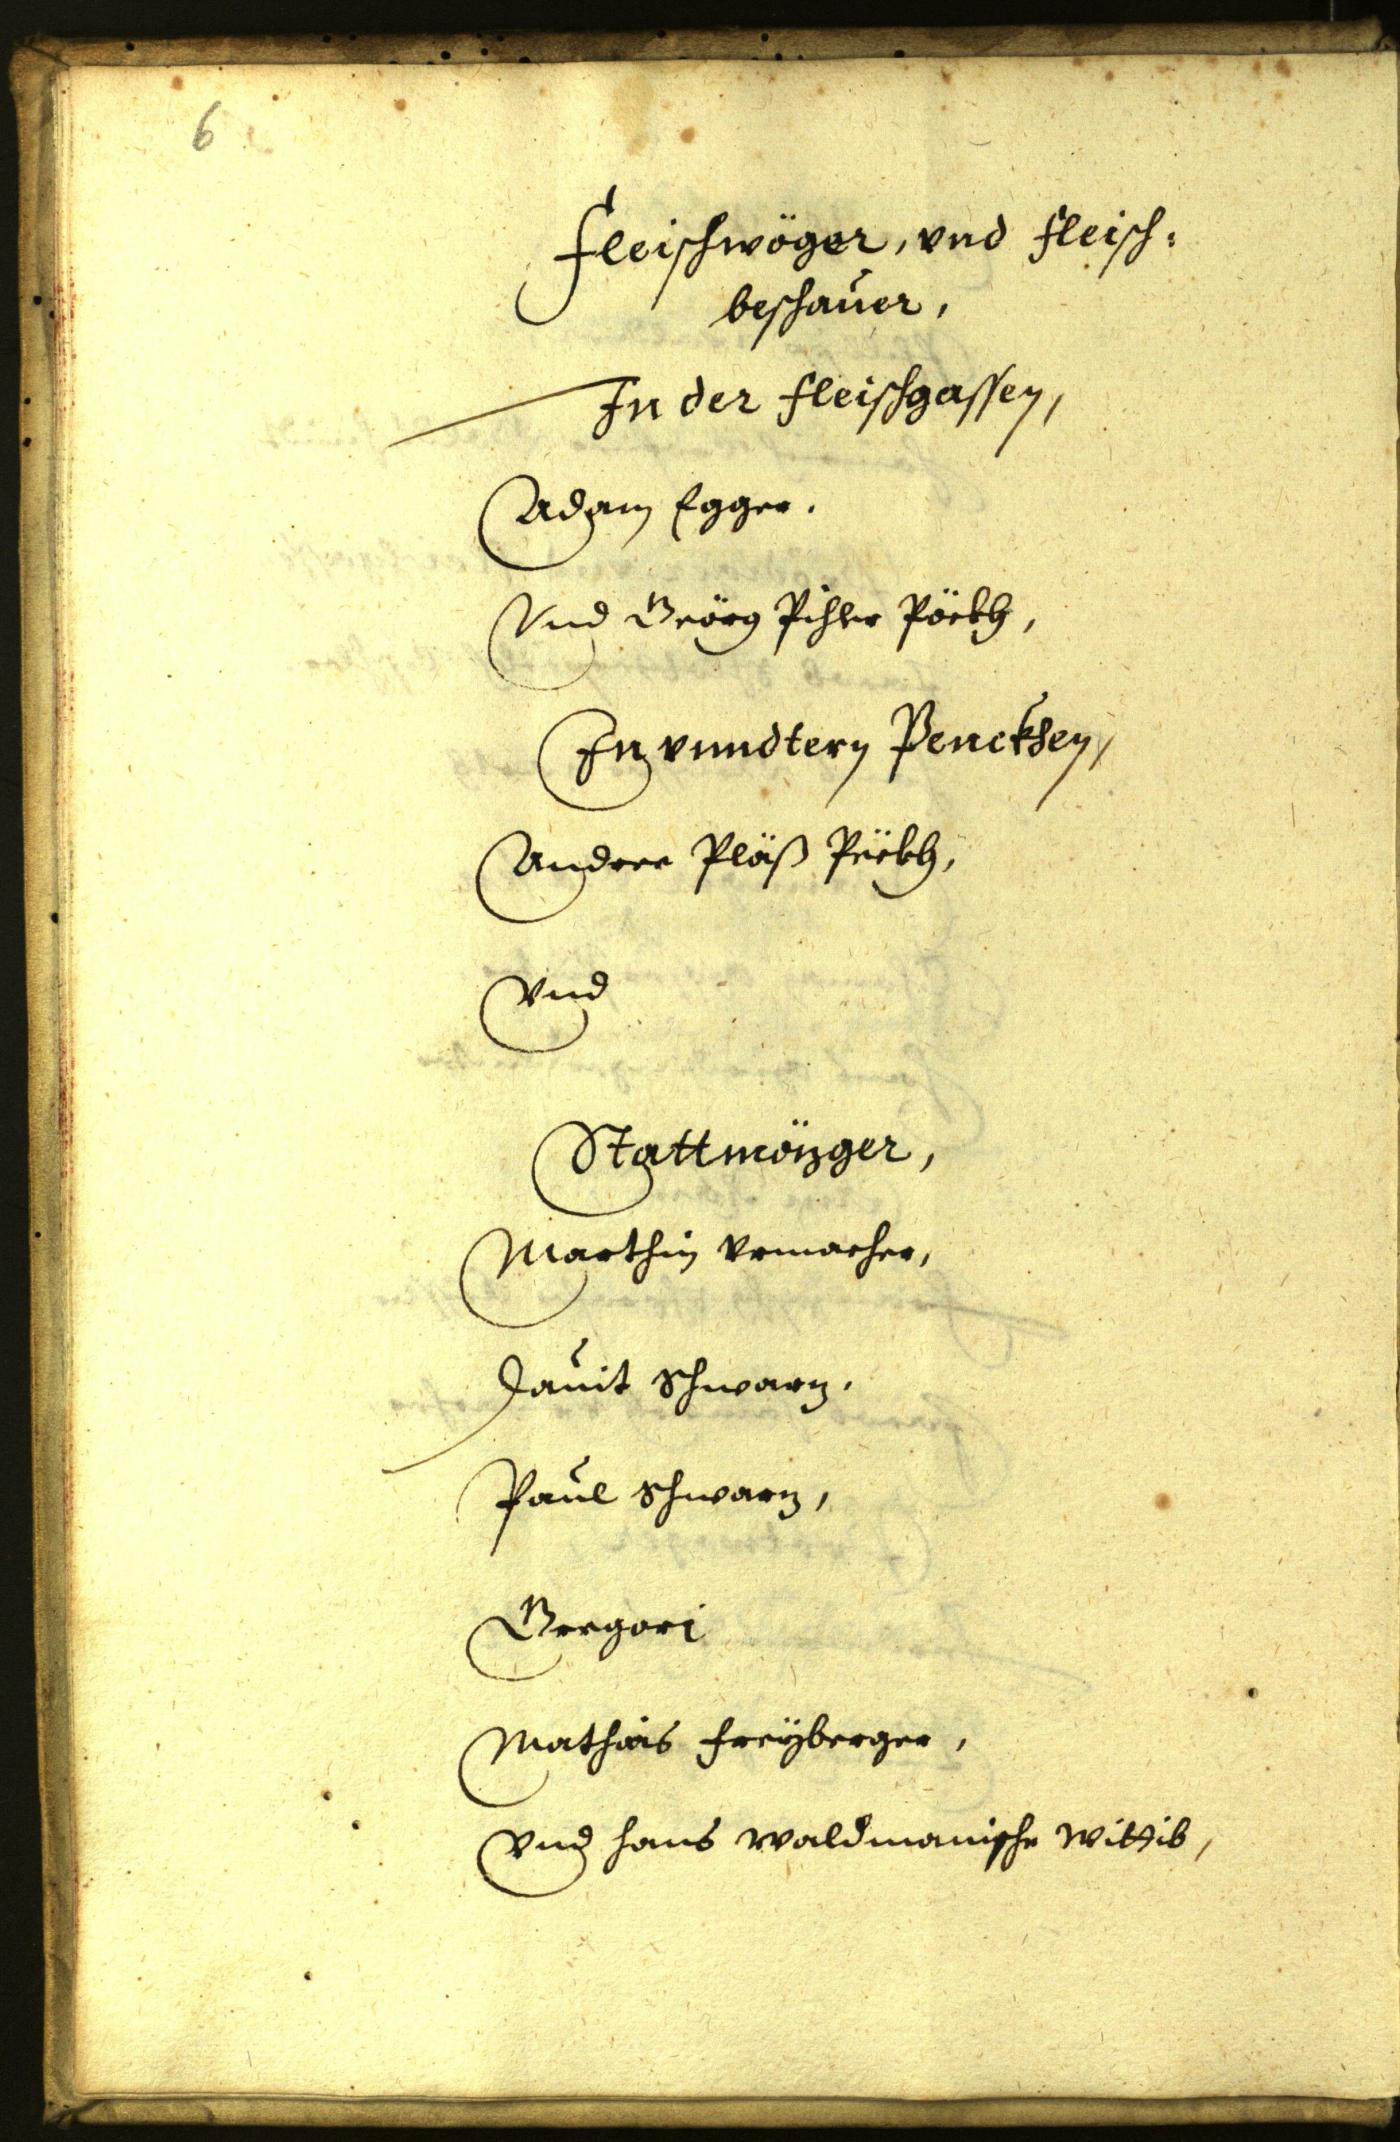 6
Fleischwöger, vnd Fleisch:
beschauer,
In der Fleischgassen,
Adam Egger.
Vnd Geörg Pihler Pöckh,
In vnndtern Penckhen,
Andree Pläß Peckh,
Vnd
Stattmözger,
Marthin Vrmacher,
Dauit Schwarz,
Paul Schwarz,
Gregori
Mathias Freÿberger,
Vnd Hans Waldmanische Wittib,